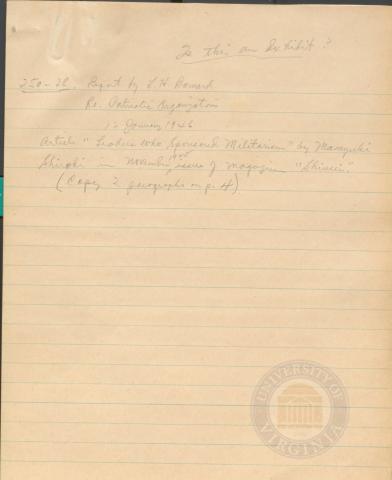 Is this an Exhibit?
250-28. Report by L. H. Barnard
Re. Patriotic Organizations
12 January 1946
Article "Leaders who Sponsored Militarism" by Masayuki
Shiroki in November 1945 issue of magazine "Shinsei".
(Copy 2 paragraphs on p. 4)
UNIVERSITY OF VIRGINIA